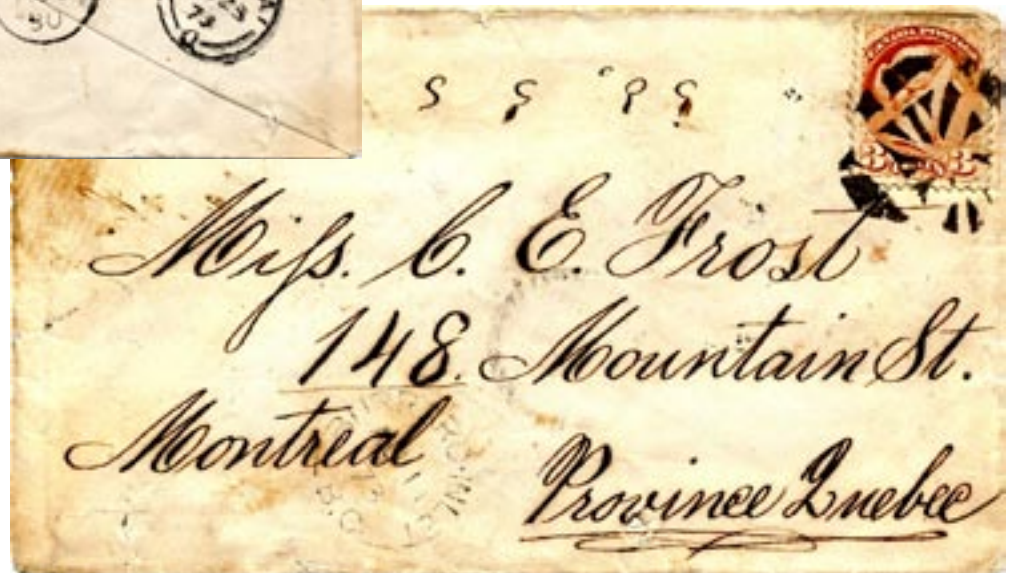 80
23
79
CANADA POSTAGE
3 3
Miss. C. E. Frost
148. Mountain St.
Montreal
Province Quebec